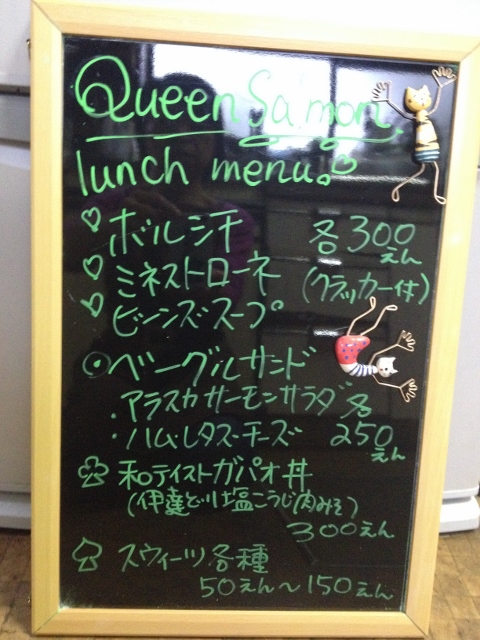 Queen Sa mon.
lunch menu。
♡ボルシ汁 各300えん
♡ミネストローネ (クラッカー付)
♡ビーンズスープ
⦿ベーグルサンド
・アラスカサーモンサラダ 各
・ハム・レタス・チーズ 250えん
♧和テイストガパオ丼
(伊達どり塩こうじ肉みそ)
300えん
♤スウィーツ各種
50えん〜150えん